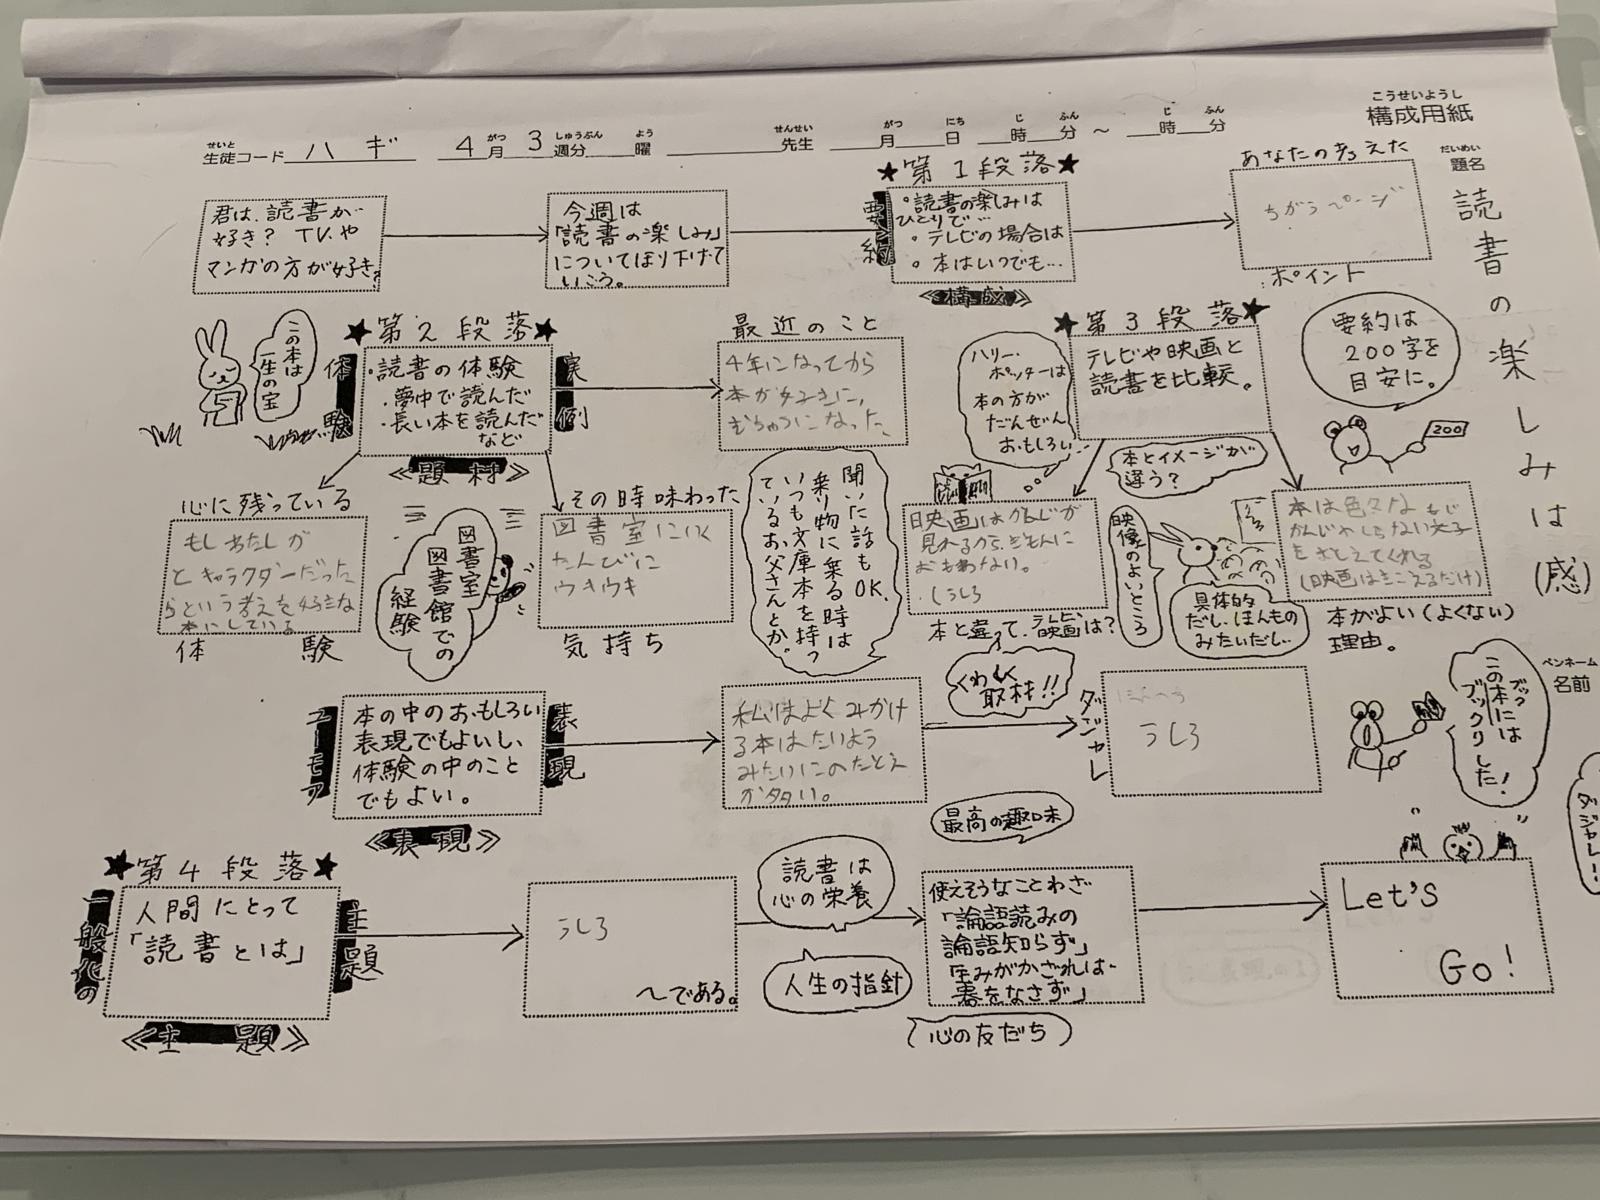 こうせいようし
構成用紙
せいと
生徒コード ハギ 4月 3週分 曜 先生 月 日 時 分 ～ 時 分
がつ しゅうぶん よう せんせい がつ にち じ ふん じ ふん
だいめい
題名
読書の楽しみは(感)
ペンネーム
名前
君は、読書が
好き? TVや
マンガの方が好き?
今週は
「読書の楽しみ」
についてほり下げて
いこう。
★第1段落★
要約
・読書の楽しみは
ひとりで…
・テレビの場合は
・本はいつでも…
≪構成≫
あなたの考えた
ちがうページ
ポイント
要約は
200字を
目安に。
200
この本は
一生の宝
★第2段落★
体験
実例
・読書の体験
・夢中で読んだ
・長い本を読んだ
など
≪題材≫
最近のこと
4年になってから
本が好きに、
むちゅうになった
心に残っている
もしわたしが
とキャラクターだった
らという考えを好きな
本にしている
体験
図書室
図書館での
経験
その時味わった
図書室にいく
たんびに
ウキウキ
気持ち
聞いた話もOK.
乗り物に乗る時は
いつも文庫本を持っ
ているお父さんとか。
★第3段落★
テレビや映画と
読書を比較。
ハリー・
ポッターは
本の方が
だんぜん
おもしろい
本とイメージが
違う?
見れるから、ぎもんに
おもわない。
うしろ
本と違って、テレビ映画は?
映像のよいところ
具体的
だし、ほんもの
みたいだし..
本は色々な
(映画はきこえるだけ)
本がよい(よくない)
理由。
ユーモア
表現
本の中のおもしろい
表現でもよいし、
体験の中のこと
でもよい。
≪表現≫
私はよくみかけ
る本はたいよう
みたいにのたとえ
が多い。
くわしく
取材を!!
ダジャレ
うしろ
この本には
ブックリした!
ブック
ダジャレー!
★第4段落★
一般化の
主題
人間にとって
「読書とは」
≪主題≫
うしろ
～である。
読書は
心の栄養
人生の指針
最高の趣味
使えそうなことわざ
「論語読みの
論語知らず」
心の友だち
Let's
Go!